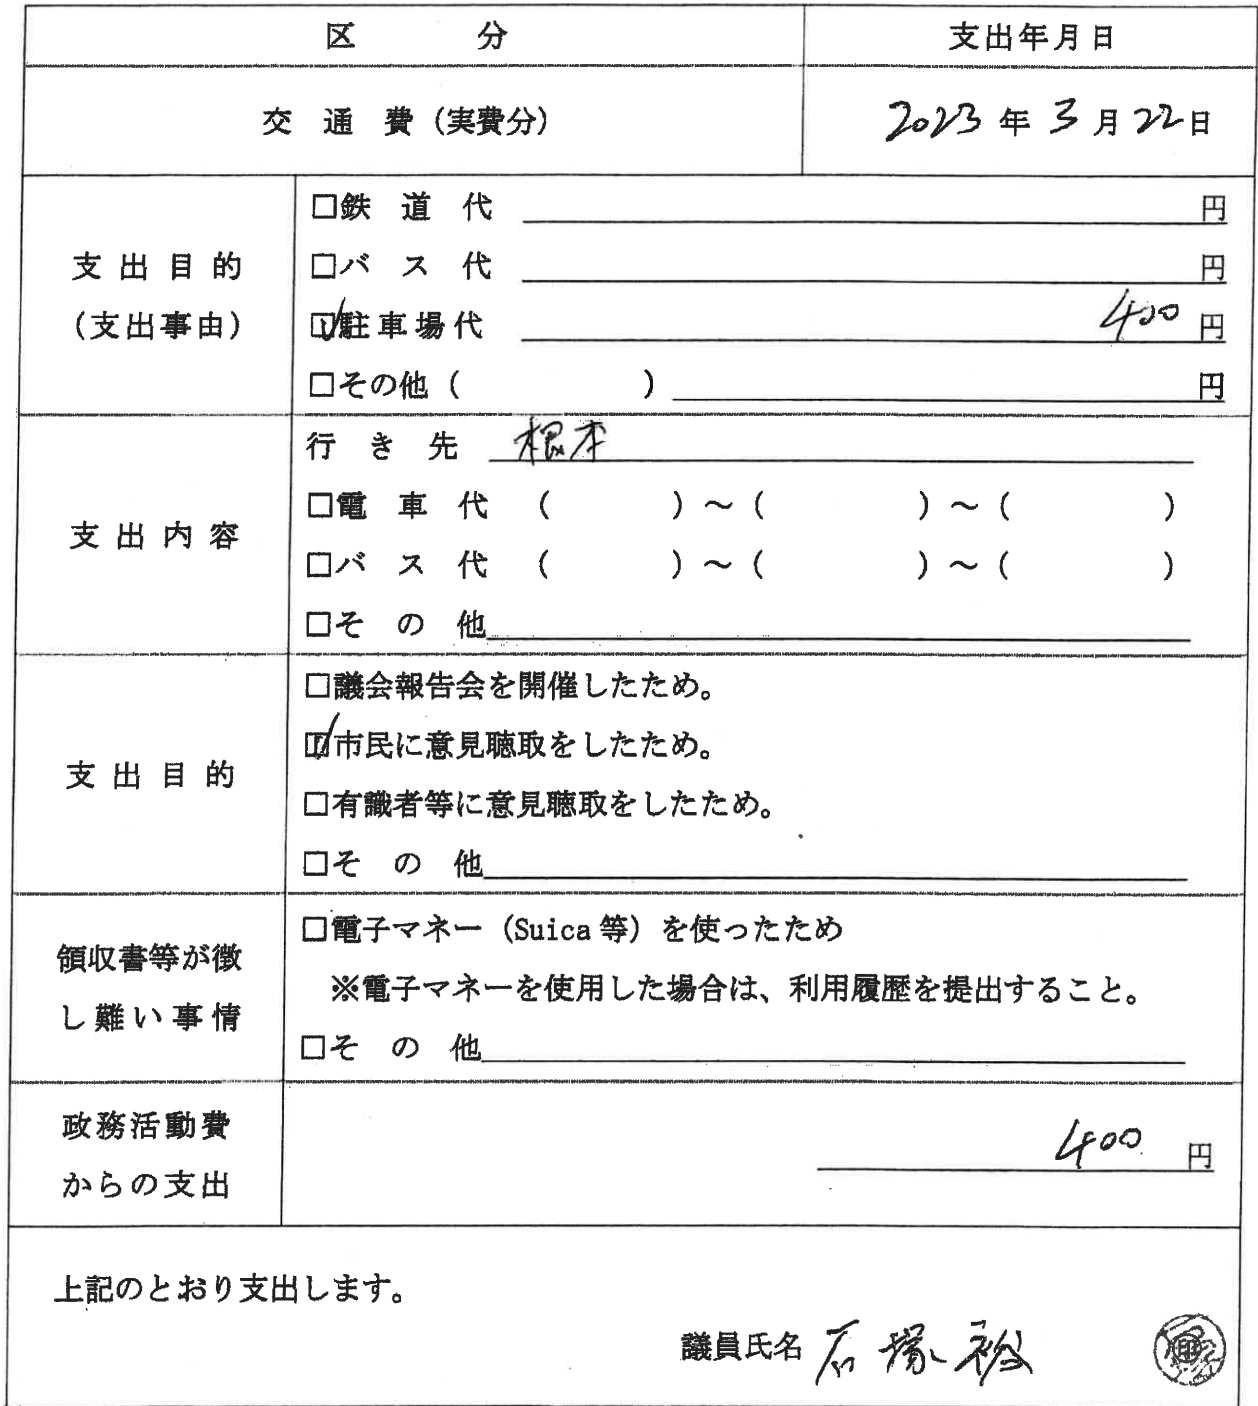 区　分　支出年月日
交 通 費（実費分）　2023 年 3 月 22 日
支出目的
（支出事由）
□鉄 道 代　円
□バ ス 代　円
☑駐車場代　400 円
□その他（　）　円
支出内容
行 き 先　根本
□電 車 代 （　）～（　）～（　）
□バ ス 代 （　）～（　）～（　）
□そ の 他
支出目的
□議会報告会を開催したため。
☑市民に意見聴取をしたため。
□有識者等に意見聴取をしたため。
□そ の 他
領収書等が徴
し難い事情
□電子マネー（Suica 等）を使ったため
※電子マネーを使用した場合は、利用履歴を提出すること。
□そ の 他
政務活動費
からの支出
400 円
上記のとおり支出します。
議員氏名 石塚 裕